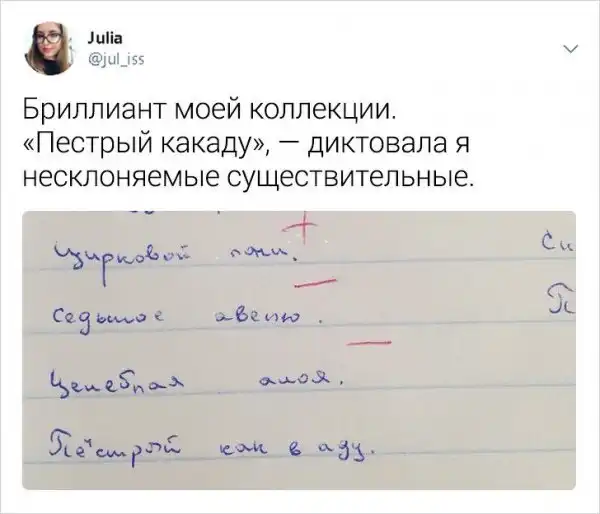 Julia
@jul_iss
Бриллиант моей коллекции.
«Пестрый какаду», — диктовала я
несклоняемые существительные.
+
Цирковой пони. Си
—
Седьмое авеню. Пё
—
Целебная алоя.
Пёстрый как в аду.